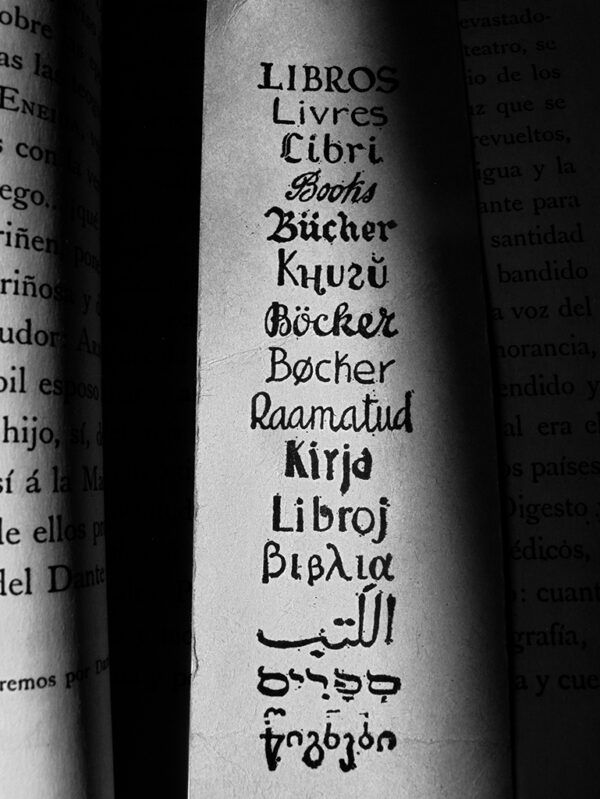 obre
as la
ENEI
s con la ve
ego... ¡qué
riñen, pone
riños y d
udor: AN
bil esposo
hijo, sí, d
sí á la Ma
de ellos pr
del Dante
remos por Dan
LIBROS
Livres
Libri
Books
Bücher
Книгй
Böcker
Bøcker
Raamatud
Kirja
Libroj
Βιβλια
الكتب
סְפָרִים
წიგნები
evastado-
teatro, su
io de los
az que se
revueltos,
igua y la
ante para
santidad
bandido
a voz del
norancia,
endido y
al era el
os países
Digesto
édicos,
: cuant
grafía,
a y cue